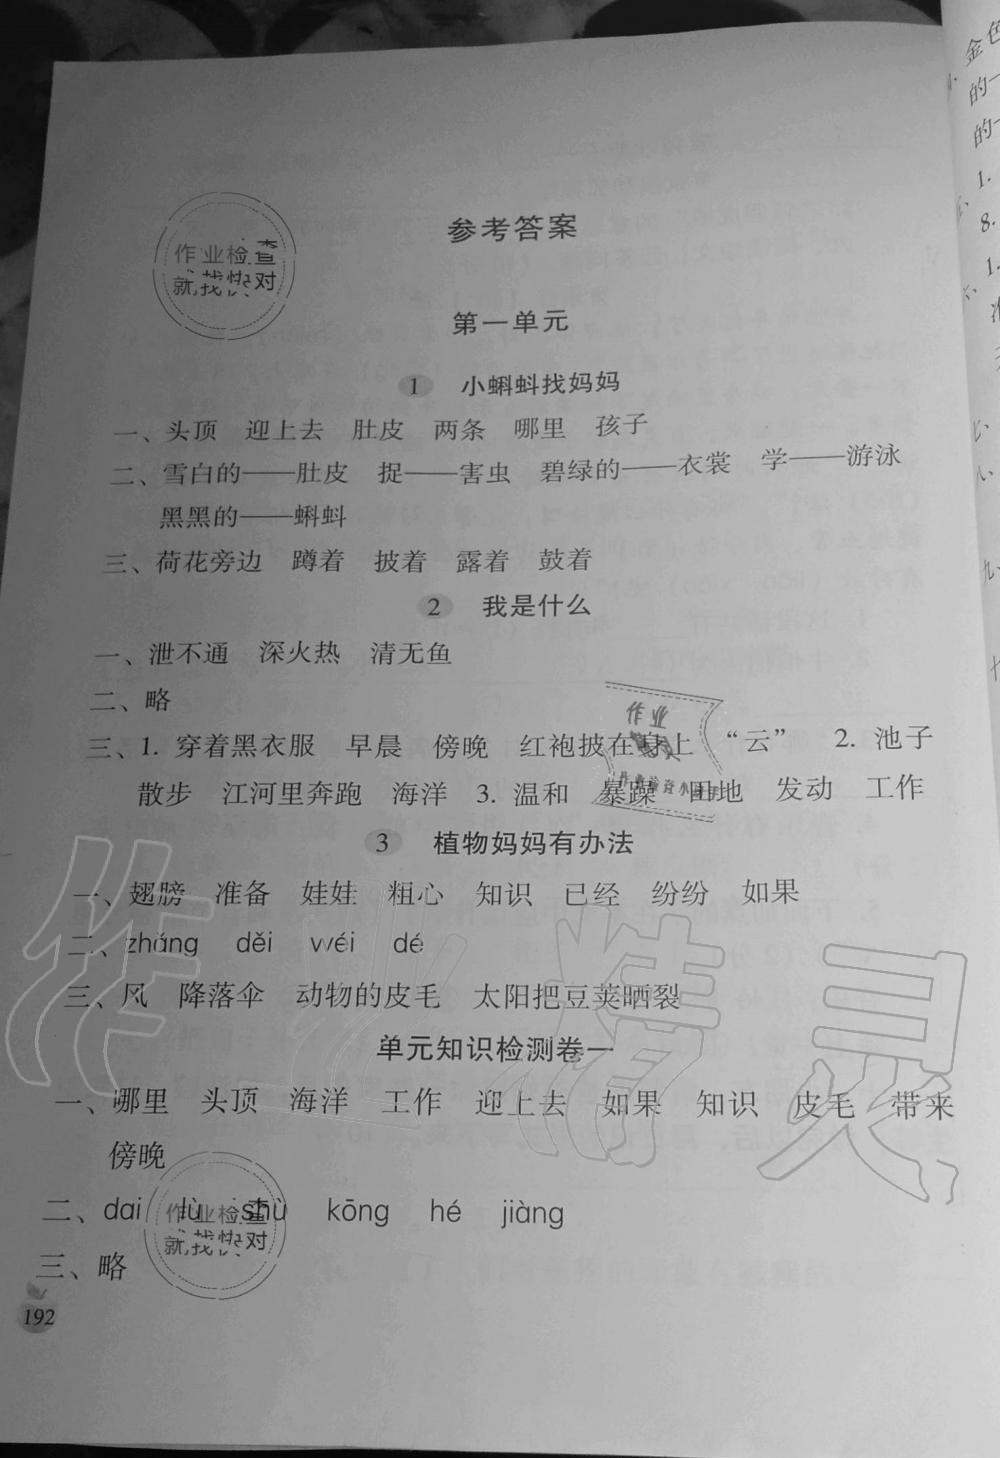 参考答案
第一单元
1 小蝌蚪找妈妈
一、头顶 迎上去 肚皮 两条 哪里 孩子
二、雪白的——肚皮 捉——害虫 碧绿的——衣裳 学——游泳
黑黑的——蝌蚪
三、荷花旁边 蹲着 披着 露着 鼓着
2 我是什么
一、泄不通 深火热 清无鱼
二、略
三、1. 穿着黑衣服 早晨 傍晚 红袍披在身上 “云” 2. 池子
散步 江河里奔跑 海洋 3. 温和 暴躁 田地 发动 工作
3 植物妈妈有办法
一、翅膀 准备 娃娃 粗心 知识 已经 纷纷 如果
二、zhǎng děi wéi dé
三、风 降落伞 动物的皮毛 太阳把豆荚晒裂
单元知识检测卷一
一、哪里 头顶 海洋 工作 迎上去 如果 知识 皮毛 带来
傍晚
二、dai lù shù kōng hé jiàng
三、略
192
作业检查
就找快对
作业检查
就找快对
作业精灵
金色
的一
的一
1.
8.
1.